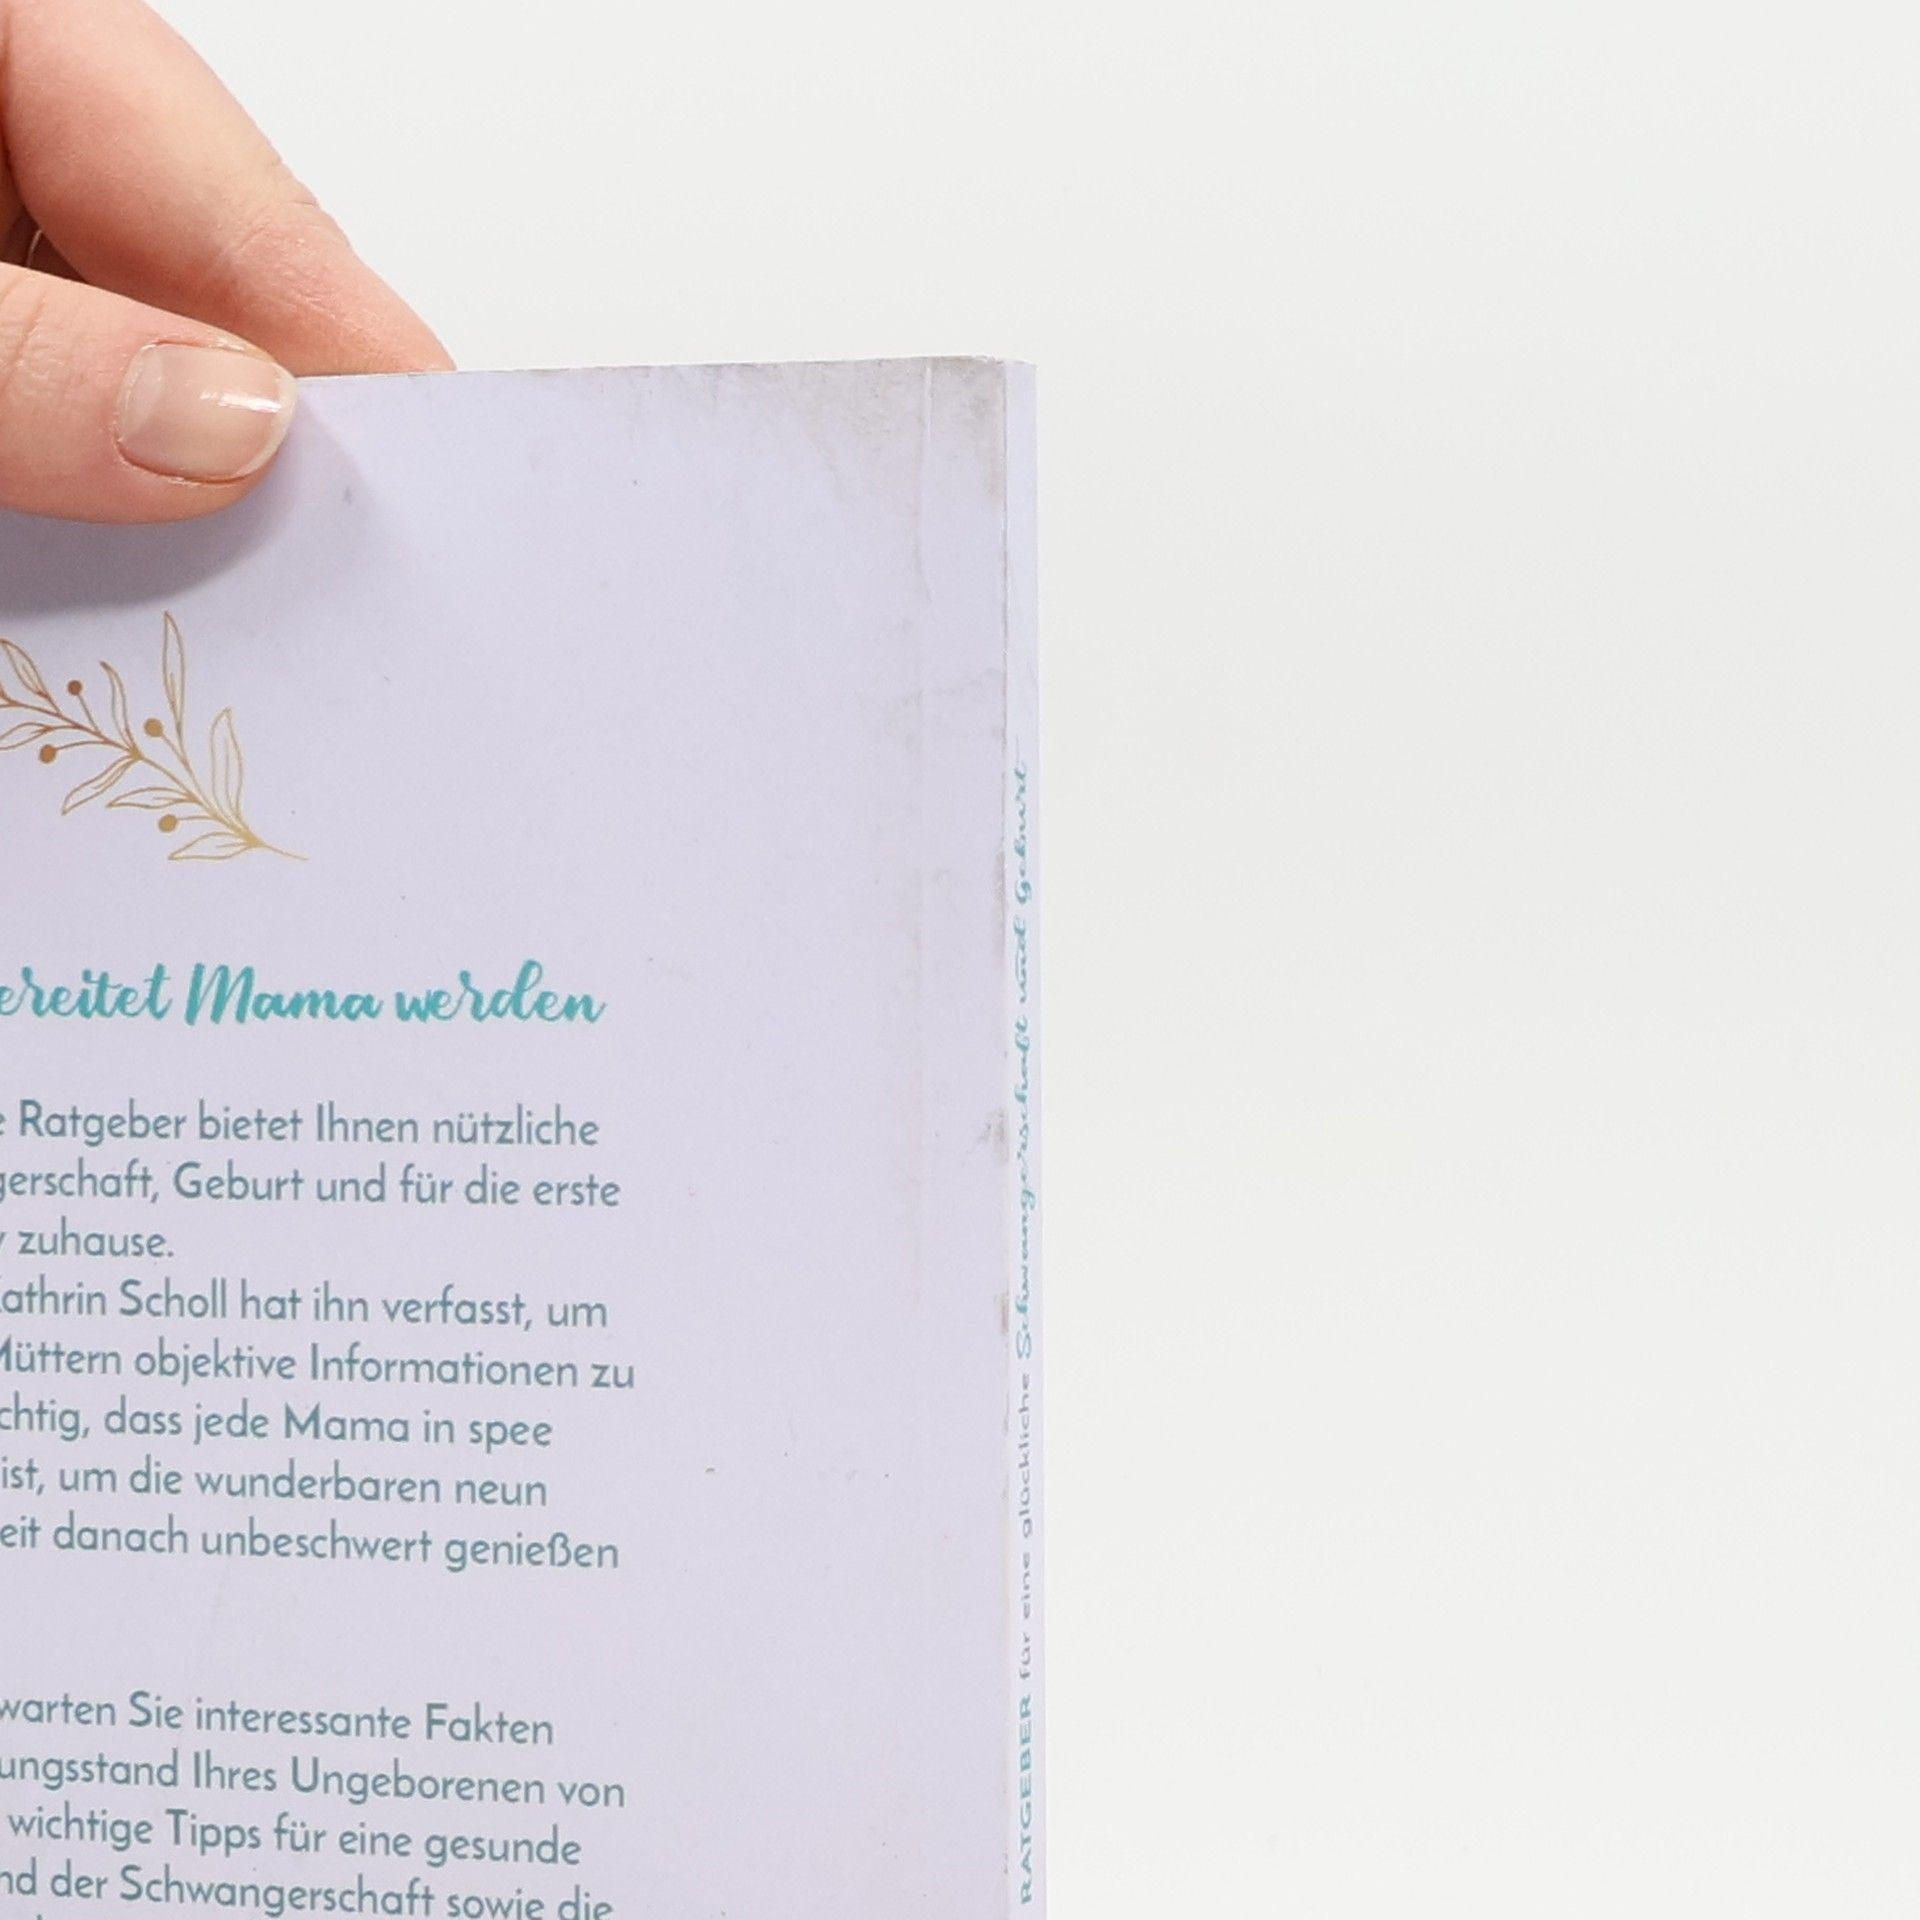 Mama werden
Ratgeber bietet Ihnen nützliche
gerschaft, Geburt und für die erste
zuhause.
Kathrin Scholl hat ihn verfasst, um
Müttern objektive Informationen zu
chtig, dass jede Mama in spee
ist, um die wunderbaren neun
eit danach unbeschwert genießen
warten Sie interessante Fakten
ungsstand Ihres Ungeborenen von
wichtige Tipps für eine gesunde
nd der Schwangerschaft sowie die
RATGEBER für eine glückliche Schwangerschaft und Geburt